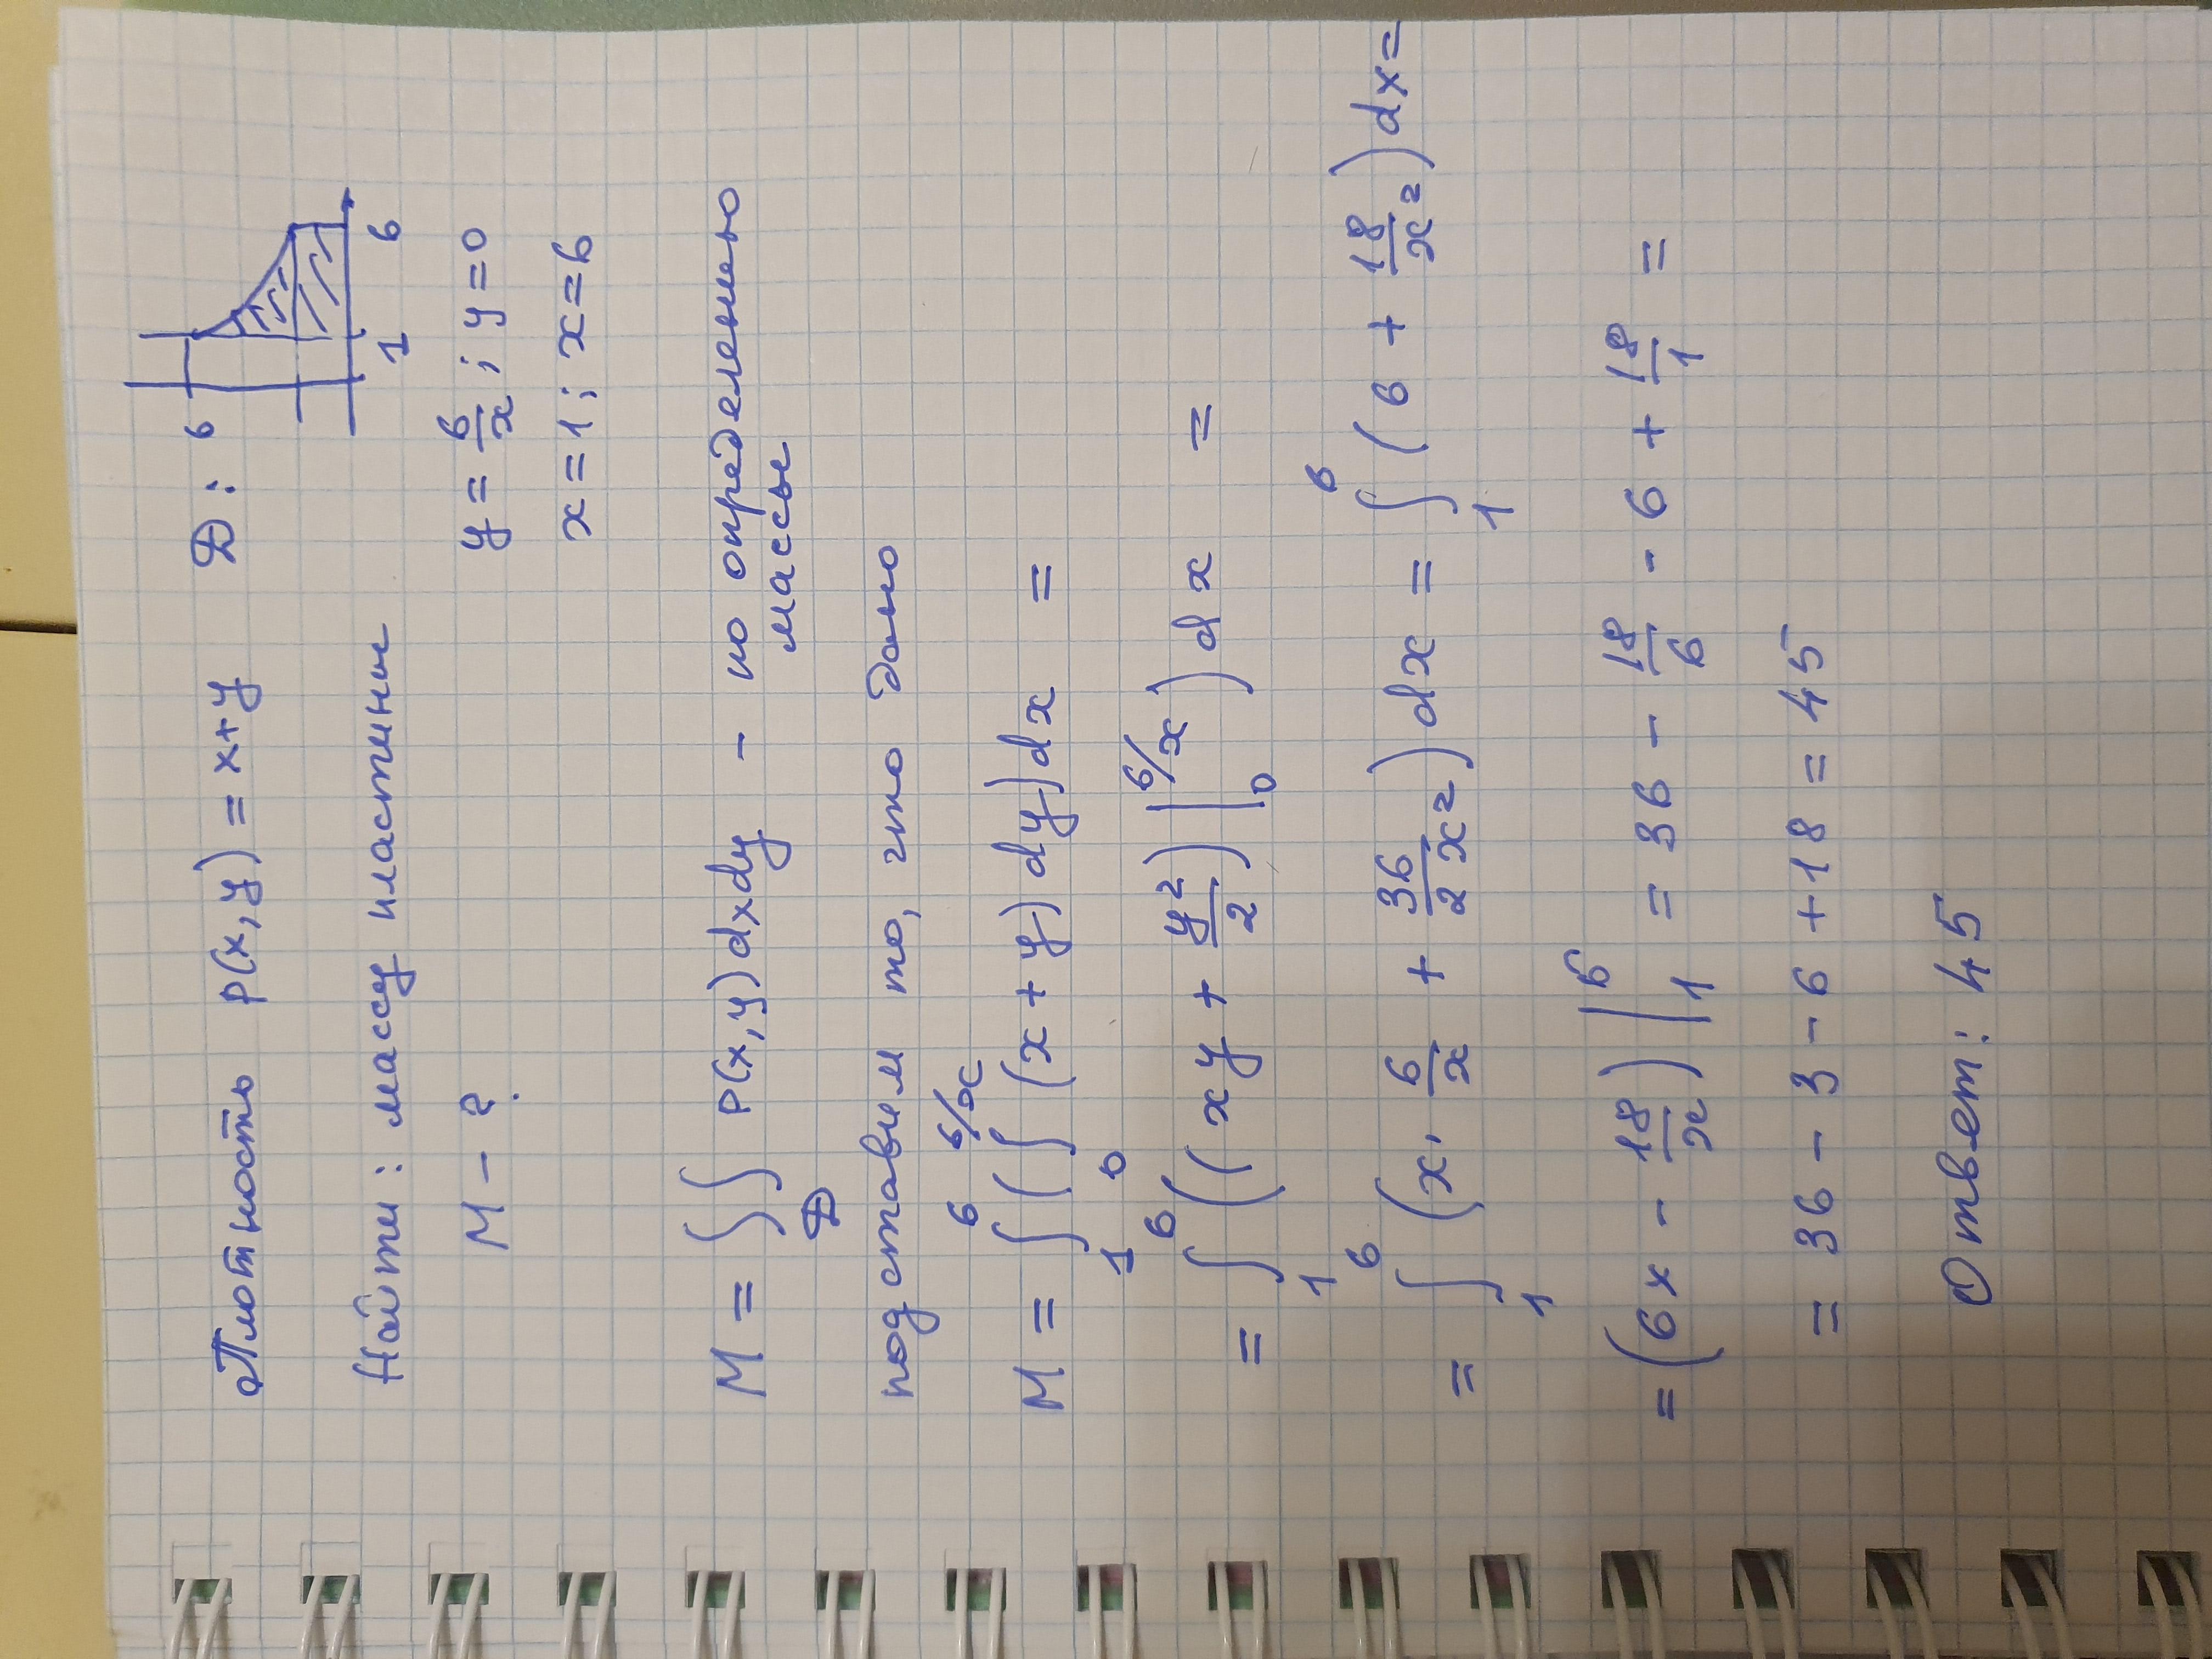 Плотность P(x,y) = x+y D:
6
1 6
Найти: массу пластины
y = 6/x ; y = 0
M - ?
x = 1 ; x = 6
M = ∬_D P(x,y) dxdy - по определению массы
подставим то, что дано
M = ∫_1^6 ( ∫_0^{6/x} (x + y) dy) dx =
= ∫_1^6 (( xy + y²/2 ) |_0^{6/x} ) dx =
= ∫_1^6 (x · 6/x + 36/2x² ) dx = ∫_1^6 ( 6 + 18/x² ) dx =
= (6x - 18/x ) |_1^6 = 36 - 18/6 - 6 + 18/1 =
= 36 - 3 - 6 + 18 = 45
Ответ: 45